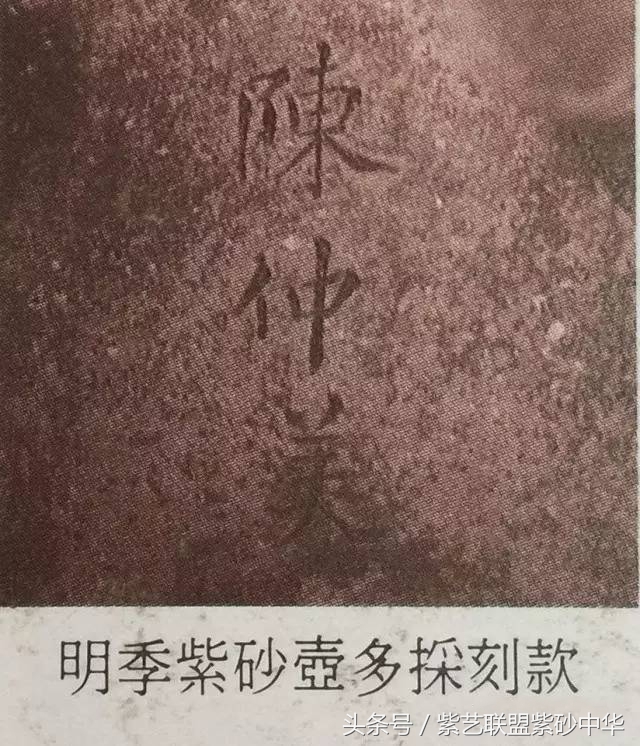 陳仲美
明季紫砂壺多採刻款
头条号 / 紫艺联盟紫砂中华